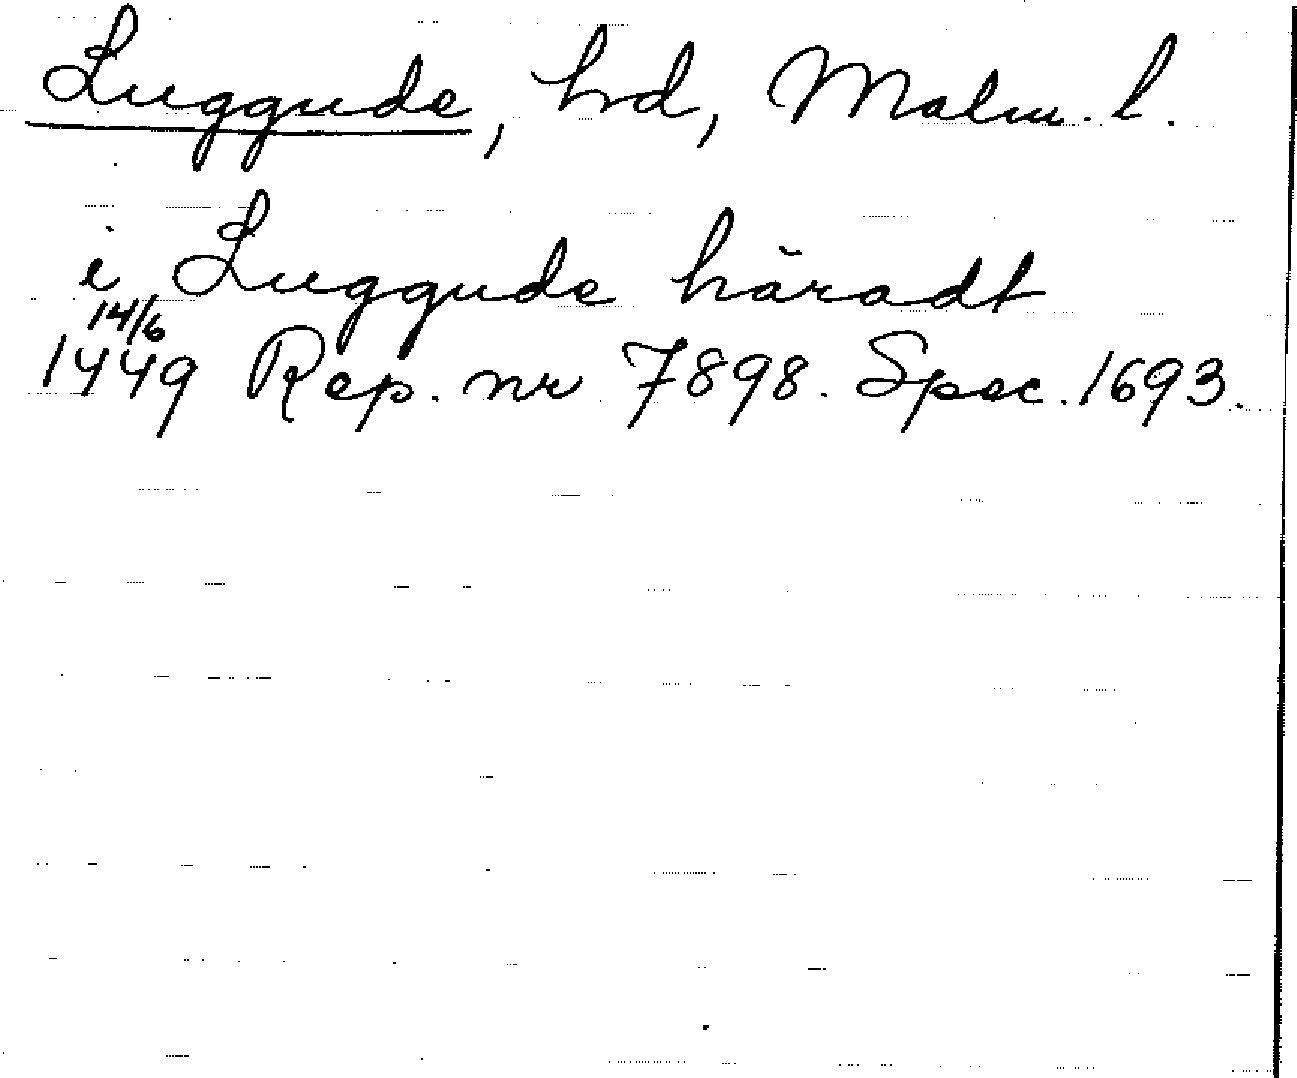 Luggude, hd, Malm. l.
i Luggude häradt
14/6
1449 Rep. nr 7898. Spec. 1693.